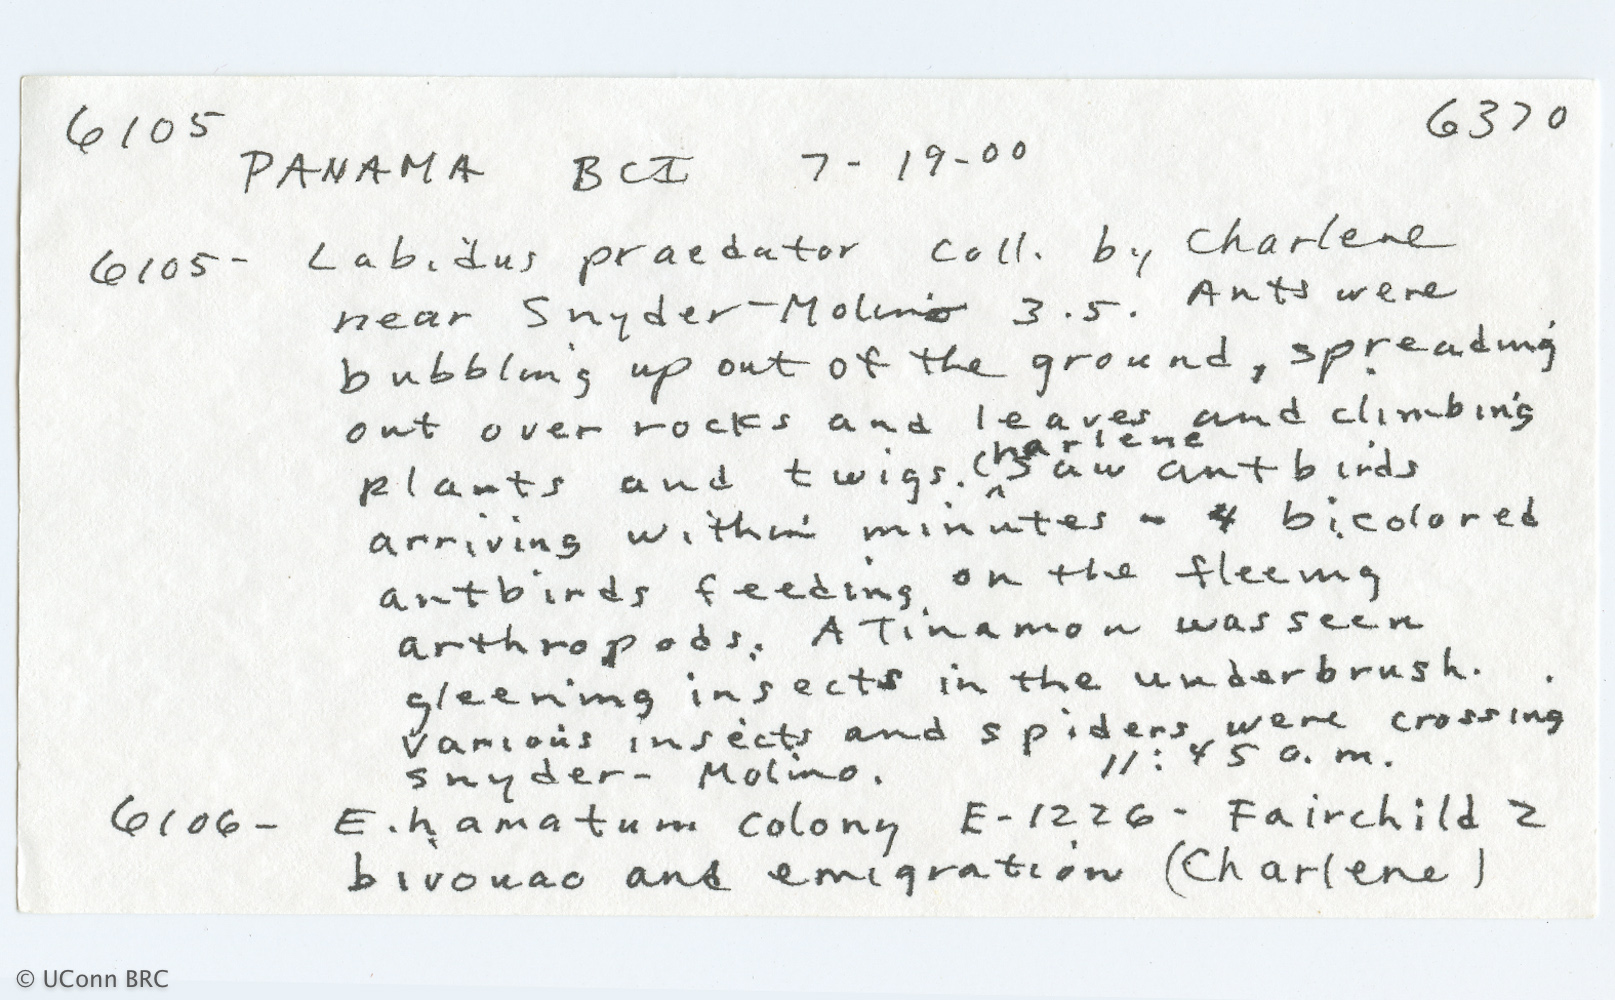 6105 6370
PANAMA BCI 7-19-00
6105- Labidus praedator coll. by Charlene
near Snyder-Molino 3.5. Ants were
bubbling up out of the ground, spreading
out over rocks and leaves and climbing
plants and twigs. Charlene saw antbirds
arriving within minutes - 4 bicolored
antbirds feeding on the fleeing
arthropods. A Tinamou was seen
gleening insects in the underbrush.
Various insects and spiders were crossing
Snyder-Molino. 11:45 a.m.
6106- E. hamatum colony E-1226- Fairchild 2
bivouac and emigration (Charlene)
© UConn BRC